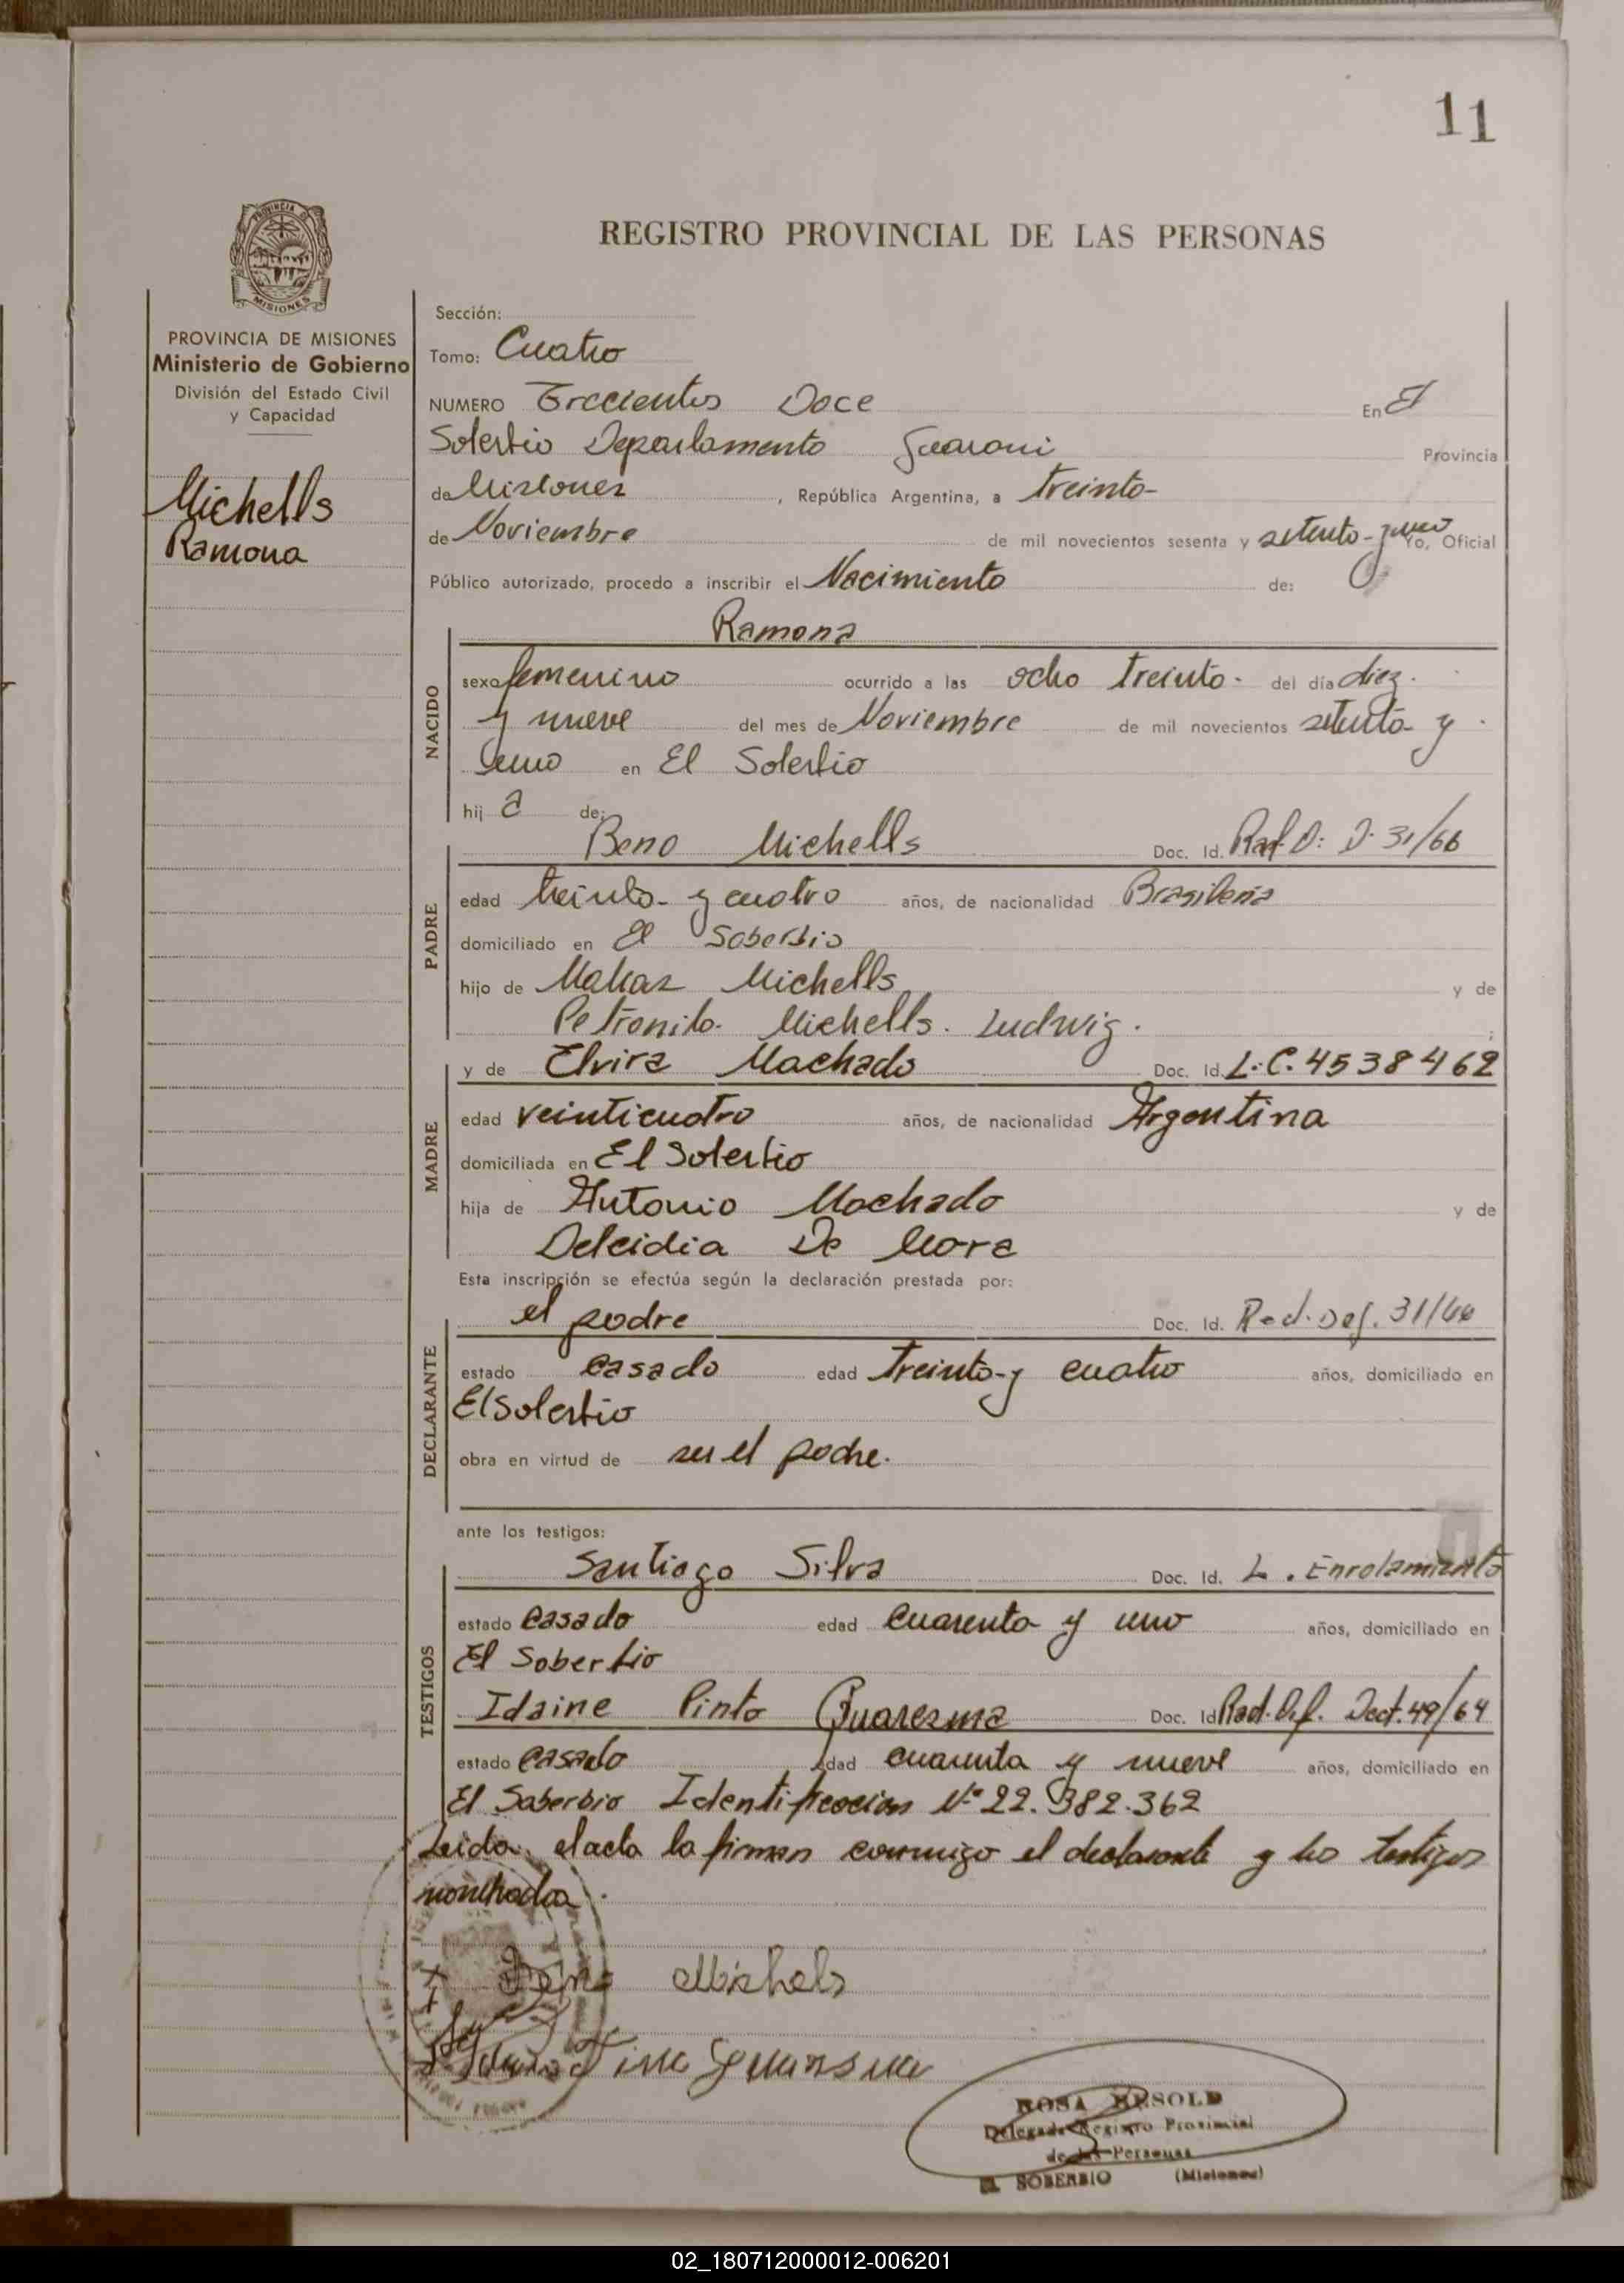 11
PROVINCIA DE
MISIONES
REGISTRO PROVINCIAL DE LAS PERSONAS
PROVINCIA DE MISIONES
Ministerio de Gobierno
División del Estado Civil
y Capacidad
Michells
Ramona
Sección:
Tomo: Cuatro
NUMERO Trecientos Doce En El
Soberbio Departamento Guarani Provincia
de Misiones, República Argentina, a treinta
de Noviembre de mil novecientos sesenta y setenta y uno Yo, Oficial
Público autorizado, procedo a inscribir el Nacimiento de:
NACIDO
Ramona
sexo femenino ocurrido a las ocho treinta del día diez
y nueve del mes de Noviembre de mil novecientos setenta y
uno en El Soberbio
hij a de:
PADRE
Beno Michells Doc. Id. Rad. D: D. 31/66
edad treinta y cuatro años, de nacionalidad Brasileña
domiciliado en El Soberbio
hijo de Michells y de
Petronila Michells. Ludwig. ;
MADRE
y de Elvira Machado Doc. Id. L.C. 4538462
edad veinticuatro años, de nacionalidad Argentina
domiciliada en El Soberbio
hija de Antonio Machado y de
Delcidia De Mora
Esta inscripción se efectúa según la declaración prestada por:
DECLARANTE
el padre Doc. Id. Rad. Def. 31/66
estado casado edad treinta y cuatro años, domiciliado en
El Soberbio
obra en virtud de ser el padre.
ante los testigos:
TESTIGOS
Santiago Silva Doc. Id. L. Enrolamiento
estado casado edad cuarenta y uno años, domiciliado en
El Soberbio
Idaine Pinto Quaresma Doc. Id Rad. Def. Dect. 49/64
estado casado edad cuarenta y nueve años, domiciliado en
El Soberbio Identificacion Nº 22.382.362
Leida el acta la firman conmigo el declarante y los testigos
nombrados.
Beno Michels
ROSA RESOLD
Delegada Registro Provincial
de las Personas
EL SOBERBIO (Misiones)
02_180712000012-006201